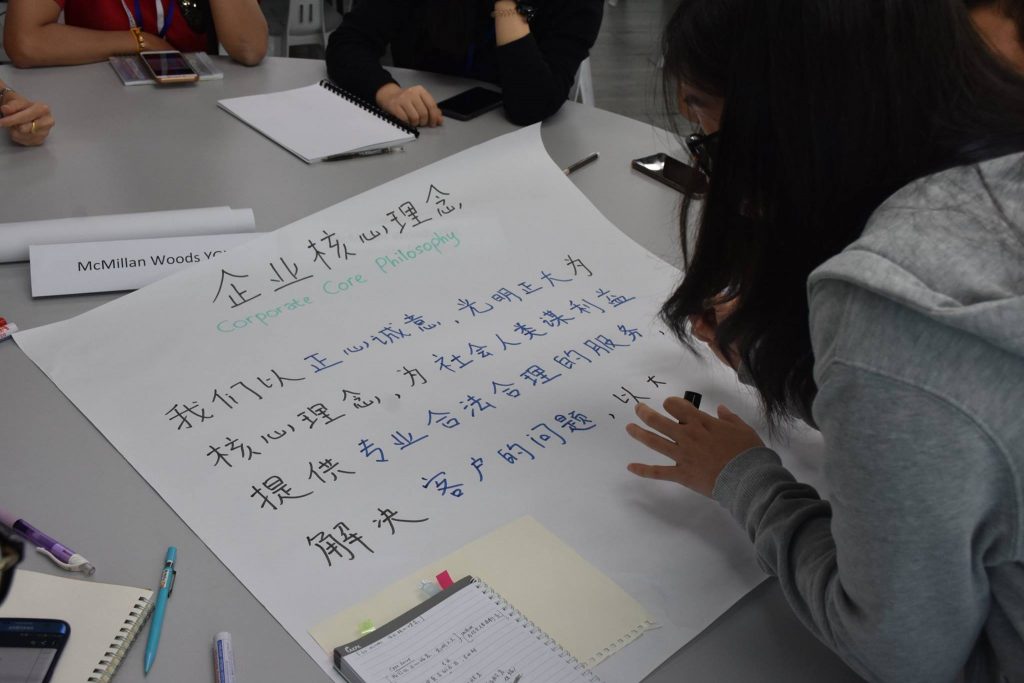 McMillan Woods
企业核心理念
Corporate Core Philosophy
我们以正心诚意、光明正大为
核心理念，为社会人类谋利益
提供专业合法合理的服务，
解决客户的问题，以